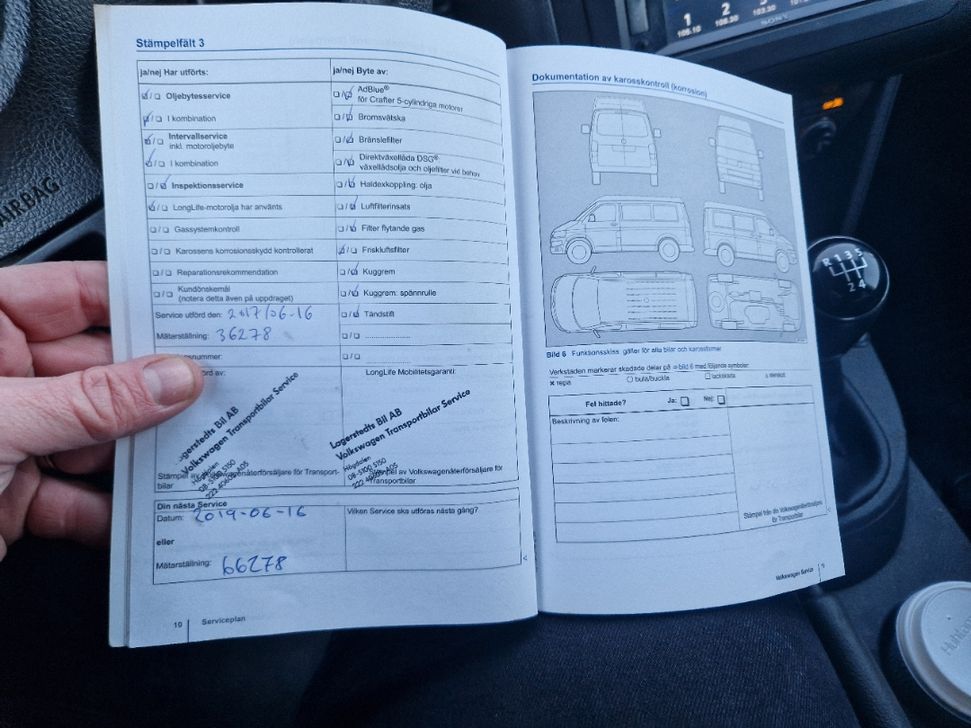 Stämpelfält 3
ja/nej Har utförts:
Oljebytesservice
I kombination
Intervallservice
inkl. motoroljebyte
I kombination
Inspektionsservice
LongLife-motorolja har använts
Gassystemkontroll
Karossens korrosionsskydd kontrollerat
Reparationsrekommendation
Kundönskemål
(notera detta även på uppdraget)
Service utförd den: 2017/06-16
Mätarställning: 36278
ja/nej Byte av:
AdBlue®
för Crafter 5-cylindriga motorer
Bromsvätska
Bränslefilter
Direktväxellåda DSG®
växellådsolja och oljefilter vid behov
Haldexkoppling: olja
Luftfilterinsats
Filter flytande gas
Friskluftsfilter
Kuggrem
Kuggrem: spännrulle
Tändstift
LongLife Mobilitetsgaranti:
Lagerstedts Bil AB
Volkswagen Transportbilar Service
Högdalen
08-5100 5150
222 40608-A05
Lagerstedts Bil AB
Volkswagen Transportbilar Service
Högdalen
08-5100 5150
222 40608-A05
Stämpel av Volkswagenåterförsäljare för Transport-
bilar
Stämpel av Volkswagenåterförsäljare för
Transportbilar
Din nästa Service
Datum: 2019-06-16
eller
Mätarställning: 66278
Vilken Service ska utföras nästa gång?
10 Serviceplan
Dokumentation av karosskontroll (korrosion)
Bild 6 Funktionsskiss: gäller för alla bilar och karossformer
Verkstaden markerar skadade delar på ⇒ bild 6 med följande symboler:
x repa
O bula/buckla
lackskada
Fel hittade? Ja: Nej:
Beskrivning av felen:
Stämpel från din Volkswagenåterförsäljare
för Transportbilar
Volkswagen Service
AIRBAG
1 2 3
SONY
R 1 3 5
2 4